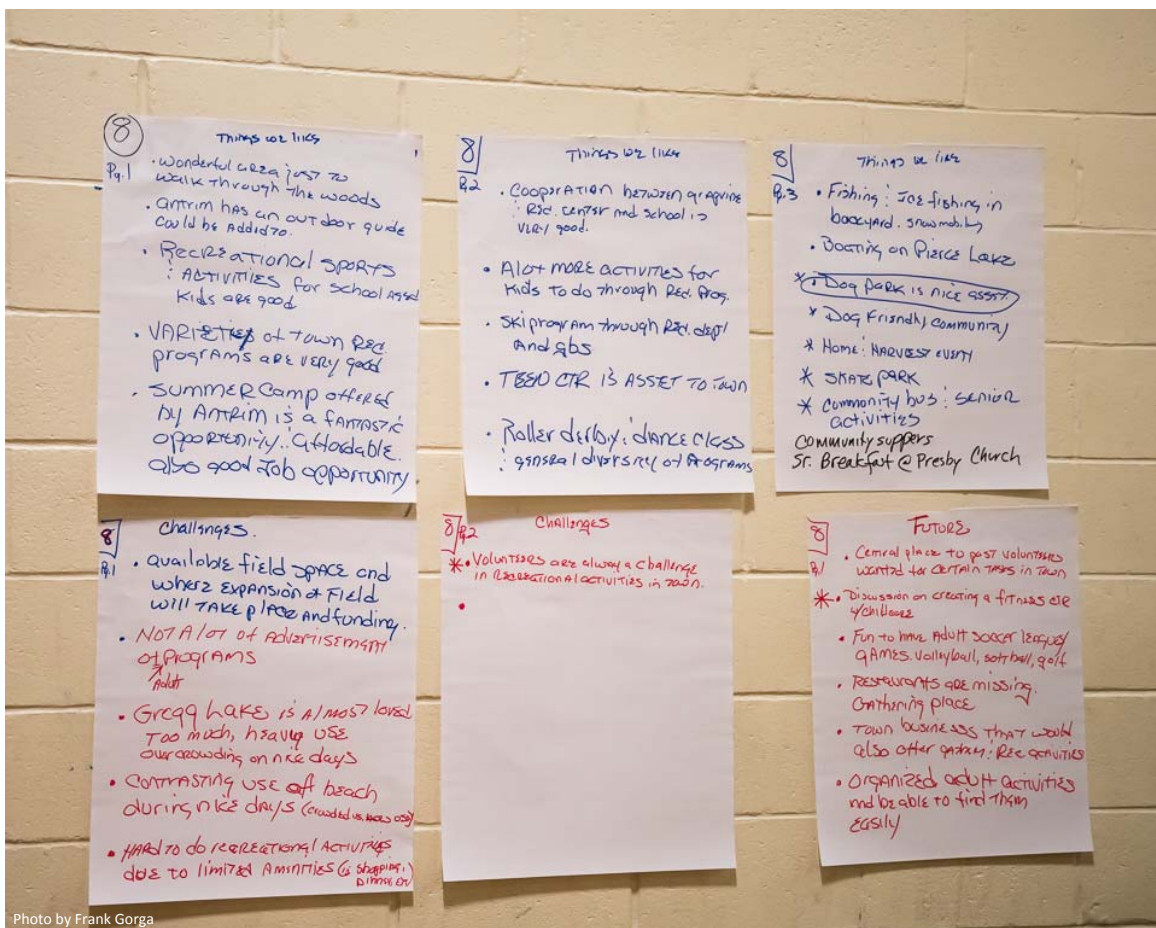 8
Things we like
Pg.1
• Wonderful area just to
walk through the woods
• Antrim has an outdoor guide
could be Added to.
• Recreational SPORTS
: ACTIVITIES for school Aged
Kids are good
• VARIETIES of town Rec.
programs are very good
• Summer Camp offered
by Antrim is a fantastic
opportunity.. affordable.
also good Job opportunity
8
Things we like
Pg.2
• Cooperation between
: Rec. center and school is
very good.
• Alot more activities for
Kids to do through Rec. Prog.
• Ski program through Rec. dept/
And gbs
• TEEN CTR IS ASSET TO TOWN
• Roller derby : dance class
: general diversity of Programs
8
Things we like
Pg.3
• Fishing : Ice fishing in
backyard. snowmobiling
• Boating on Pierce Lake
* • Dog Park is nice asset.
* Dog Friendly community
* Home : Harvest event
* SKATE PARK
* Community bus : senior
activities
Community suppers
Sr. Breakfast @ Presby Church
8
Challenges.
Pg.1
• available field space and
where expansion of Field
will TAKE place and funding.
• Not A lot of Advertisement
of Programs
Adult
• Gregg Lake is almost loved
too much, heavy use
overcrowding on nice days
• Contrasting use of beach
during nice days (crowded vs. use)
• HARD TO do recreational Activities
due to limited Aminities (is shopping,
Dinner, etc)
8
Pg.2
Challenges
* • Volunteers are always a challenge
in Recreational activities in town.
•
8
Future
Pg.1
• Central place to post volunteers
wanted for certain tasks in town
* • Discussion on creating a fitness ctr
w/childcare
• Fun to have Adult soccer league/
games. volleyball, softball, golf
• Restaurants are missing.
Gathering place
• Town businesses that would
also offer : Rec activities
• Organized adult activities
and be able to find them
easily
Photo by Frank Gorga